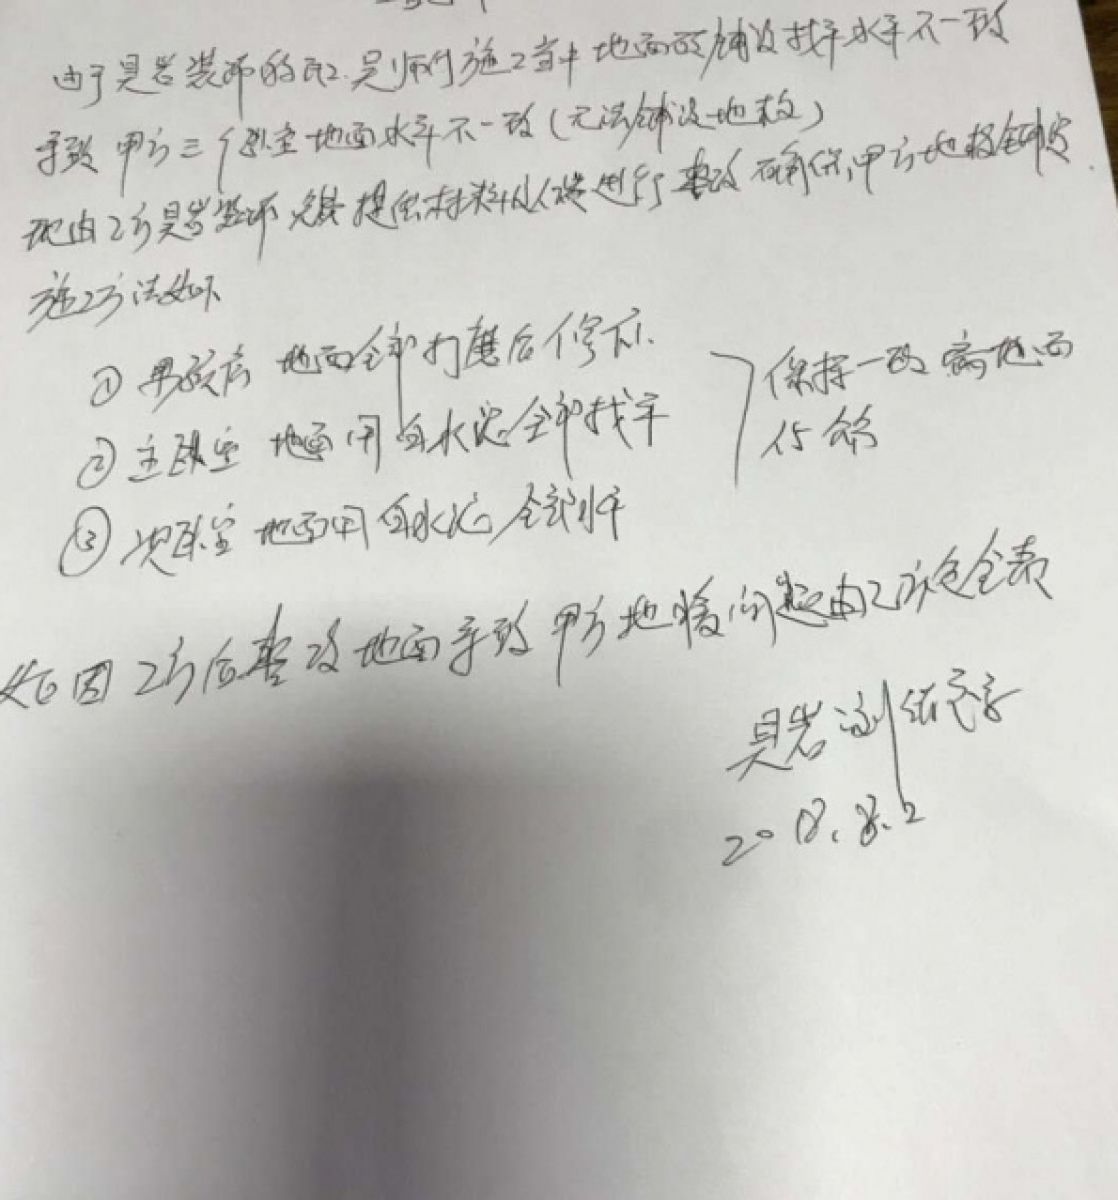 由于昊岩装饰的瓦工师傅施工当中地面砖铺设找平水平不一致
导致甲方三个卧室地面水平不一致(无法铺设地板)
现由乙方昊岩装饰提供材料以及进行整改确保甲方地板铺设
施工方法如下
①男孩房 地面全部打磨后修补
②主卧室 地面用白水泥全部找平
③次卧室 地面用白水泥全部水平
保持一致 离地面
15
如因乙方后整改地面导致甲方地暖问题由乙方负全责
昊岩 刘
2018.8.2